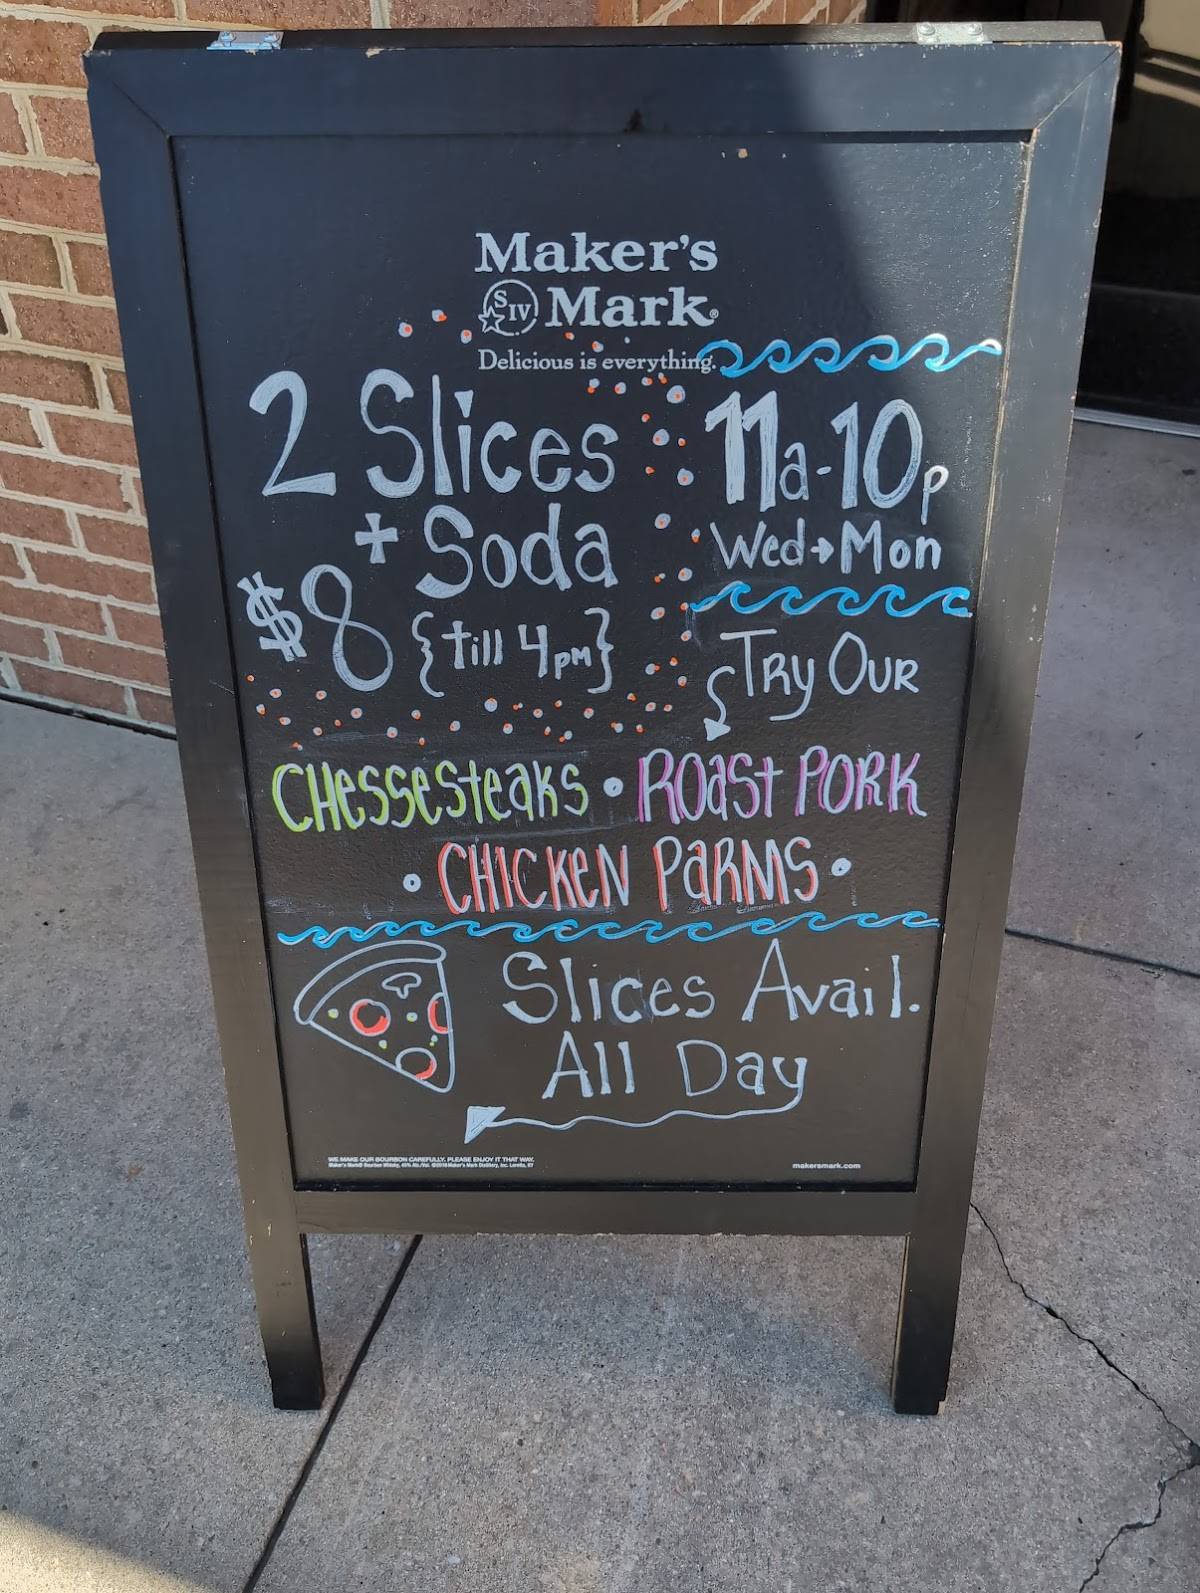 Maker's
SIV Mark®
Delicious is everything.
2 Slices
+ Soda
$8 {till 4pm}
11a-10p
Wed→Mon
Try Our
CHesseSteaks • ROast PORK
• CHICKeN PaRMS •
Slices Avail.
All Day
WE MAKE OUR BOURBON CAREFULLY. PLEASE ENJOY IT THAT WAY.
Maker's Mark® Bourbon Whisky, 45% Alc./Vol. ©2018 Maker's Mark Distillery, Inc. Loretto, KY
makersmark.com